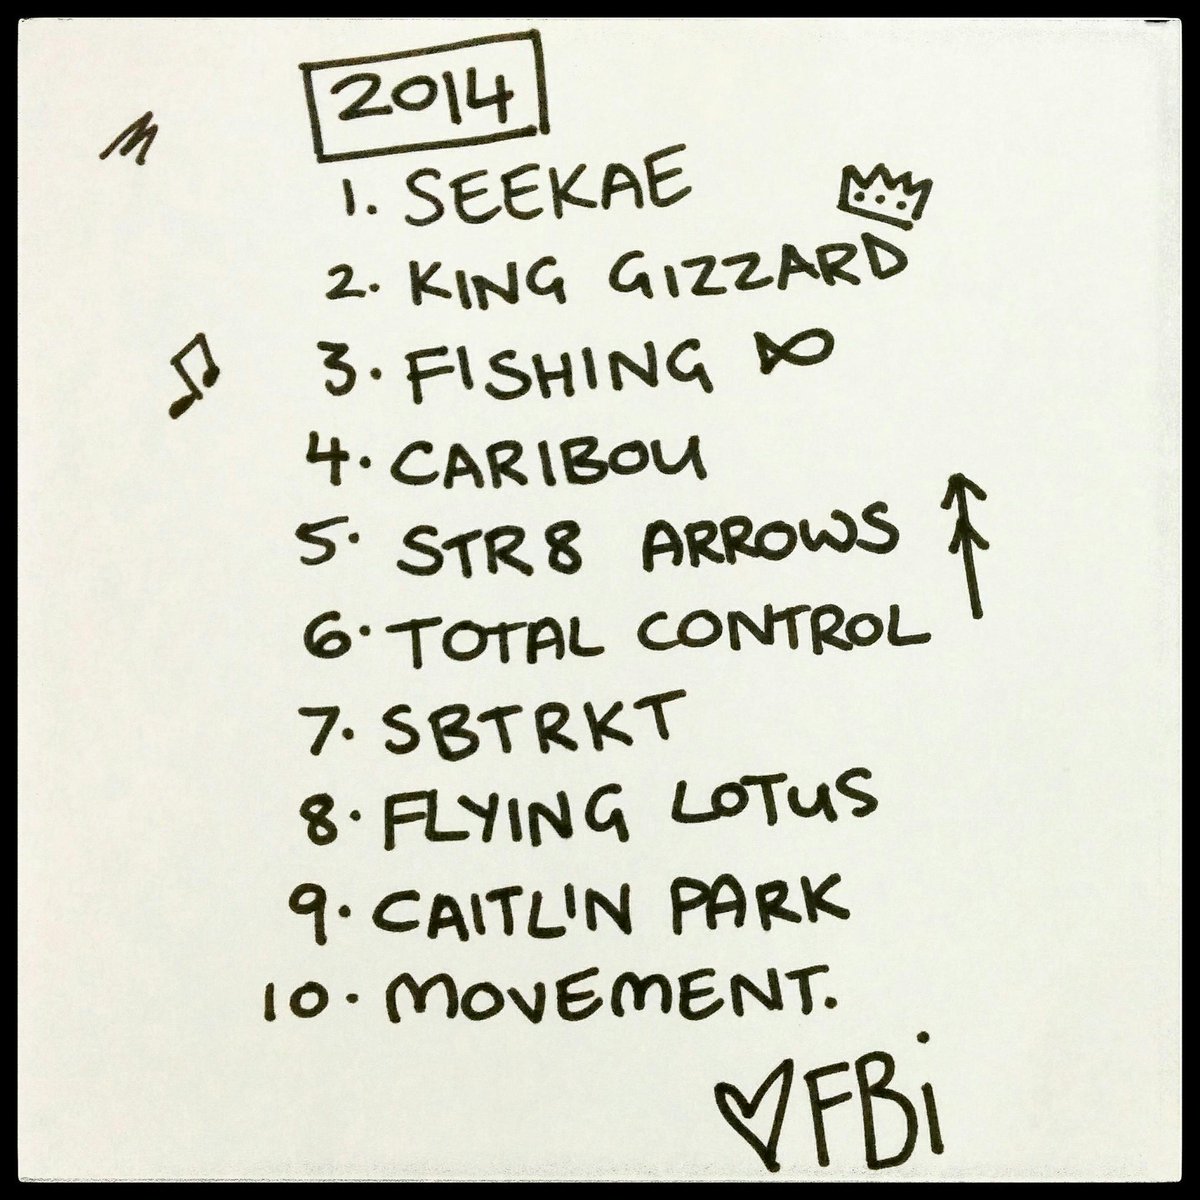 2014
1. SEEKAE
2. KING GIZZARD
3. FISHING
4. CARIBOU
5. STR8 ARROWS
6. TOTAL CONTROL
7. SBTRKT
8. FLYING LOTUS
9. CAITLIN PARK
10. MOVEMENT.
FBi